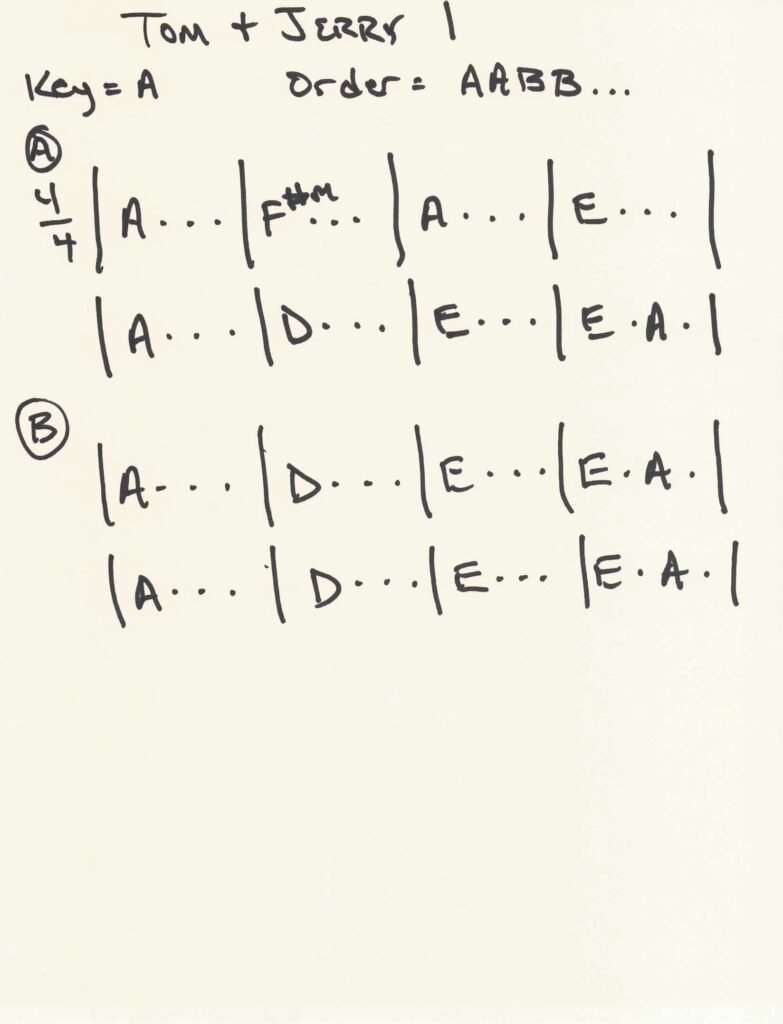 TOM + JERRY 1
Key = A Order = AABB...
A
4/4 | A . . . | F#m . . . | A . . . | E . . . |
| A . . . | D . . . | E . . . | E . A . |
B
| A . . . | D . . . | E . . . | E . A . |
| A . . . | D . . . | E . . . | E . A . |